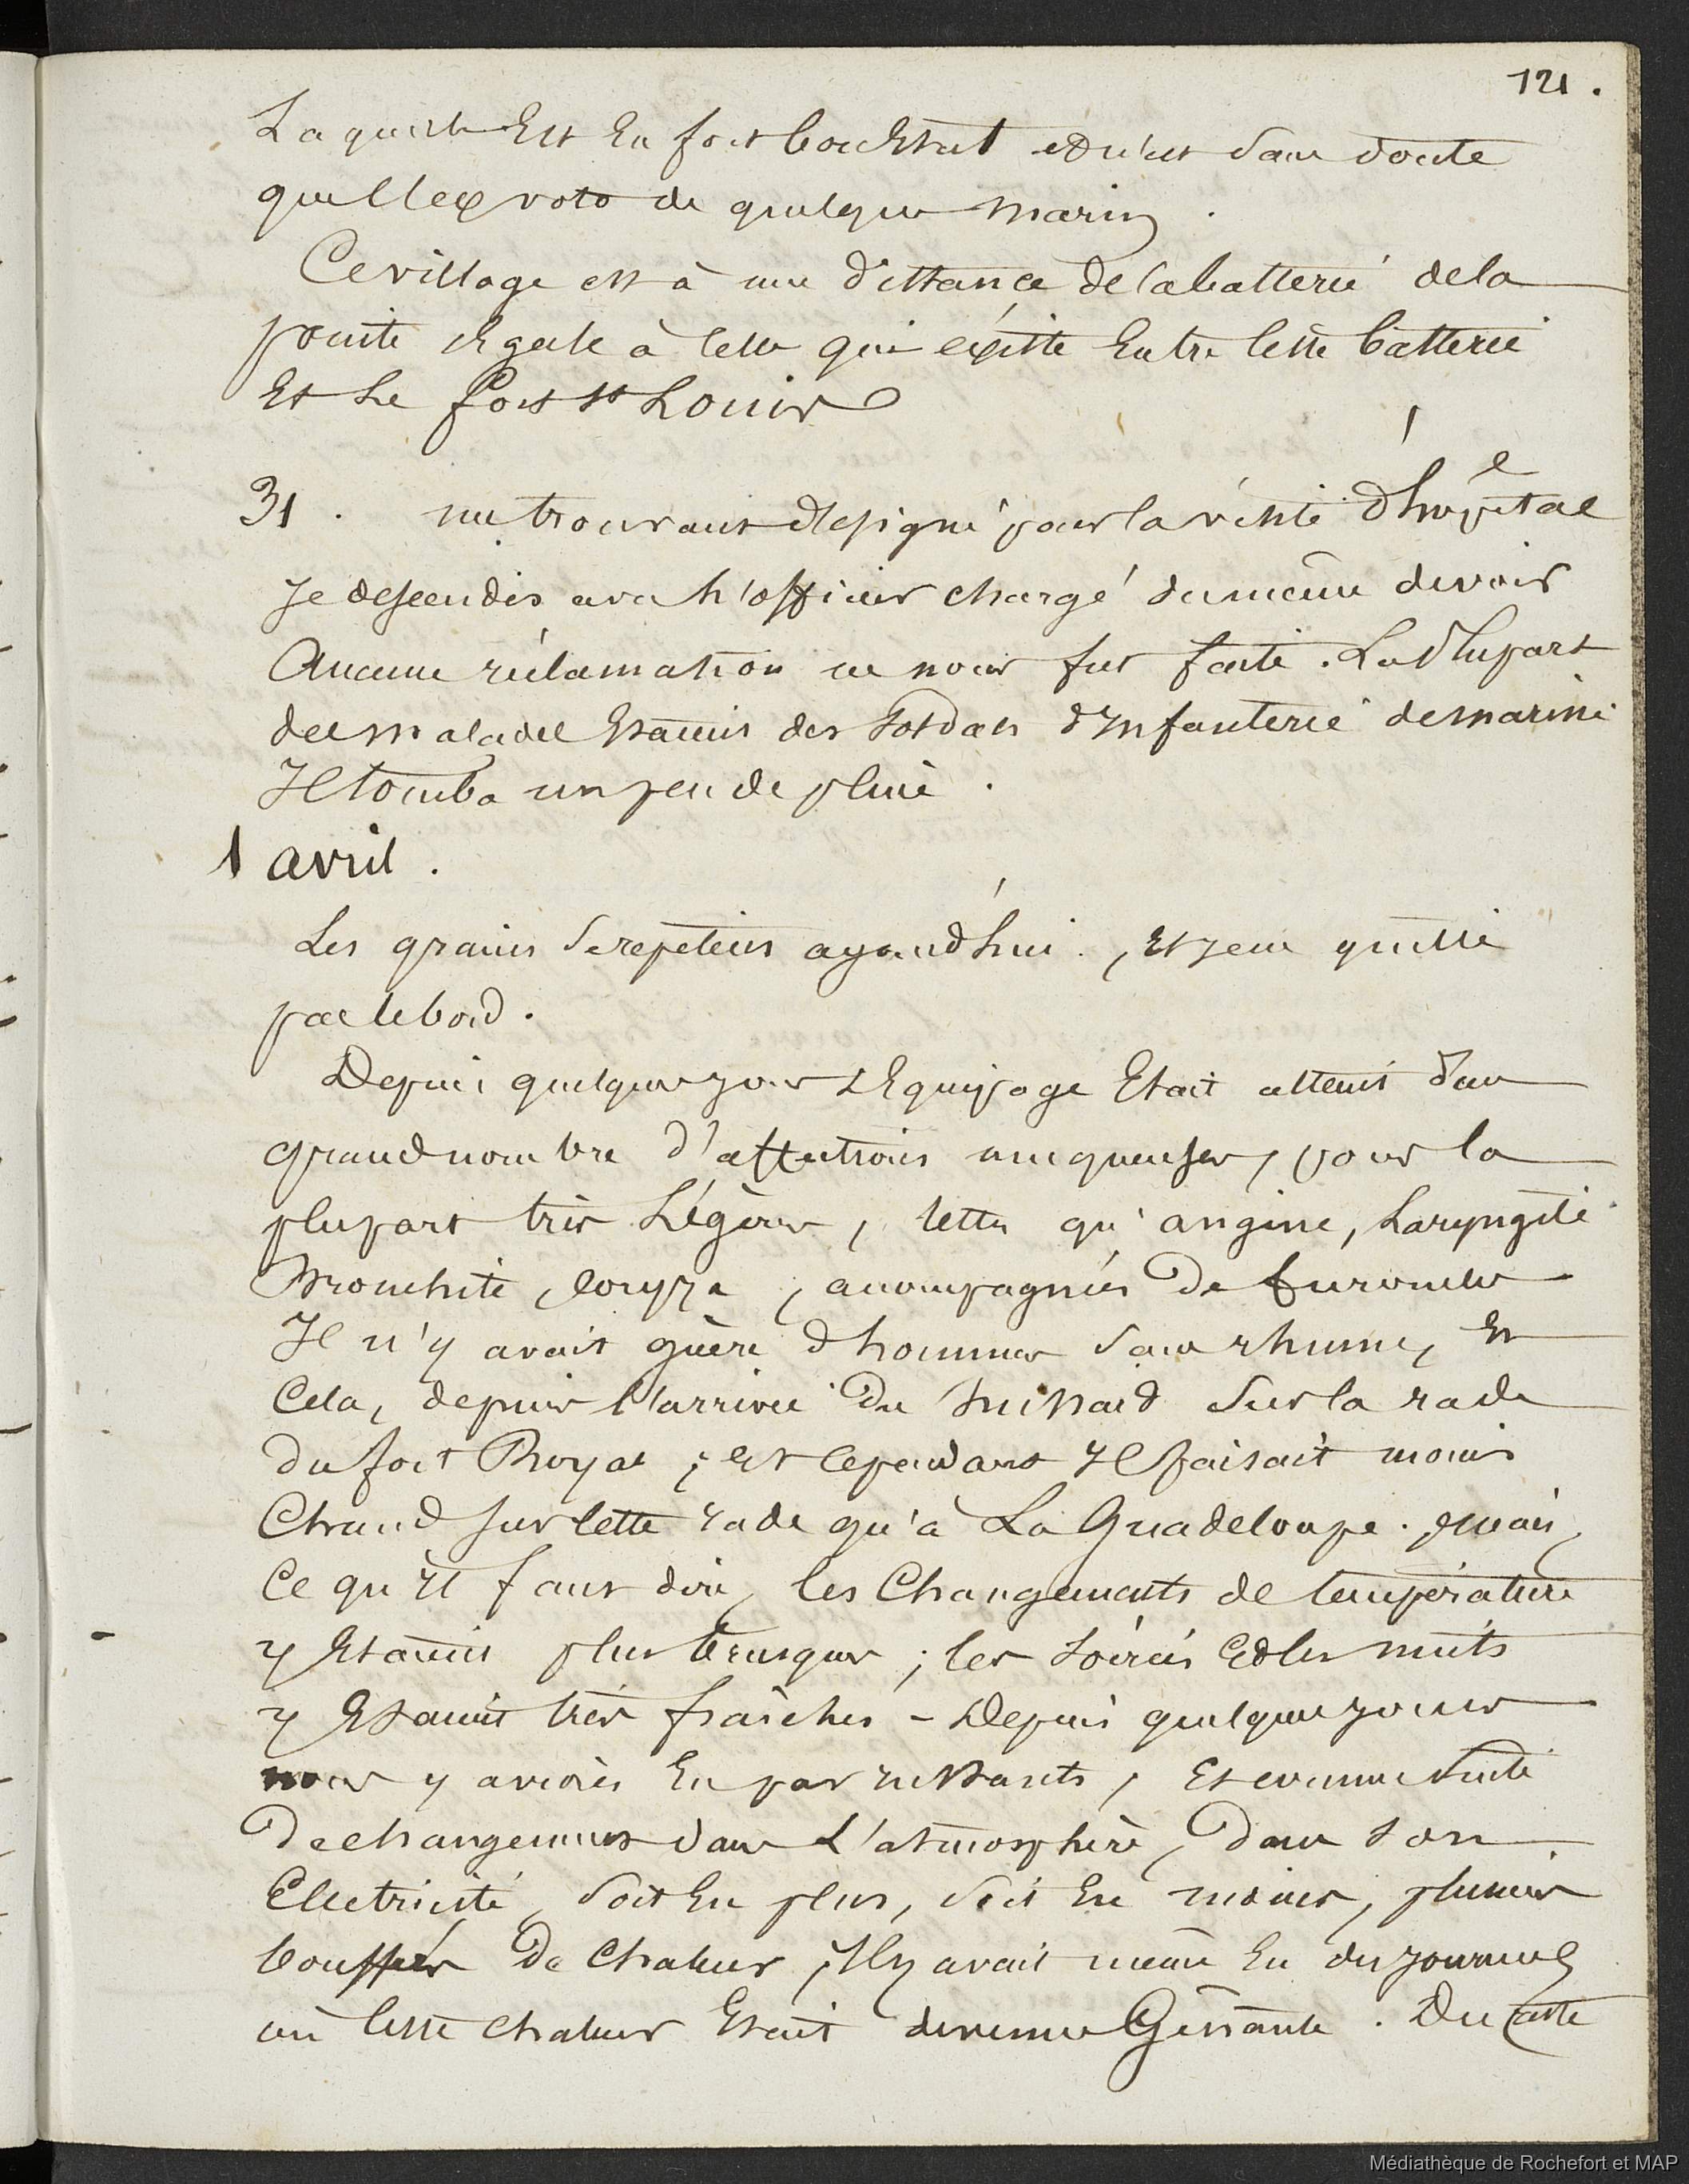 121.
Laquelle Est En fort bon Etat et n'est sans doute
que l'ex voto de quelque marin.
Ce village est à une distance de la batterie de la
pointe Egale à celle qui existe Entre cette batterie
Et Le fort St Louis
31. me trouvant désigné pour la visite d'hôpital
Je descendis avec L'officier chargé du même devoir
Aucune réclamation ne nous fut faite. La Plupart
des malades Etaient des Soldats d'Infanterie de marine
Il tomba un peu de pluie.
1 avril.
Les grains Se repetent aujourd'hui, Et je ne quitte
pas le bord.
Depuis quelques jours L'Equipage Etait atteint d'un
grand nombre d'affections muqueuses, pour la
plupart très Légères, telles qu'angine, Laryngite
Bronchite, Coryza, accompagnées De furoncles
Il n'y avait guère d'hommes sans rhume, Et
Cela, depuis L'arrivée Du Sur la rade
du fort Royal; Et Cependant Il faisait moins
Chaud sur cette rade qu'à La Guadeloupe. mais,
Ce qu'il faut dire, les Changements de température
y Etaient plus brusques; les Soirées Et les nuits
y Etaient très fraîches - Depuis quelques jours
nous y avions Eu par instants, Et comme Suite
De changements dans L'atmosphère, Dans son
Electricité, Soit En plus, Soit En moins, plusieurs
bouffées De Chaleur, Il y avait même Eu des journées
où Cette chaleur Etait devenue Gênante. Du reste
Médiathèque de Rochefort et MAP